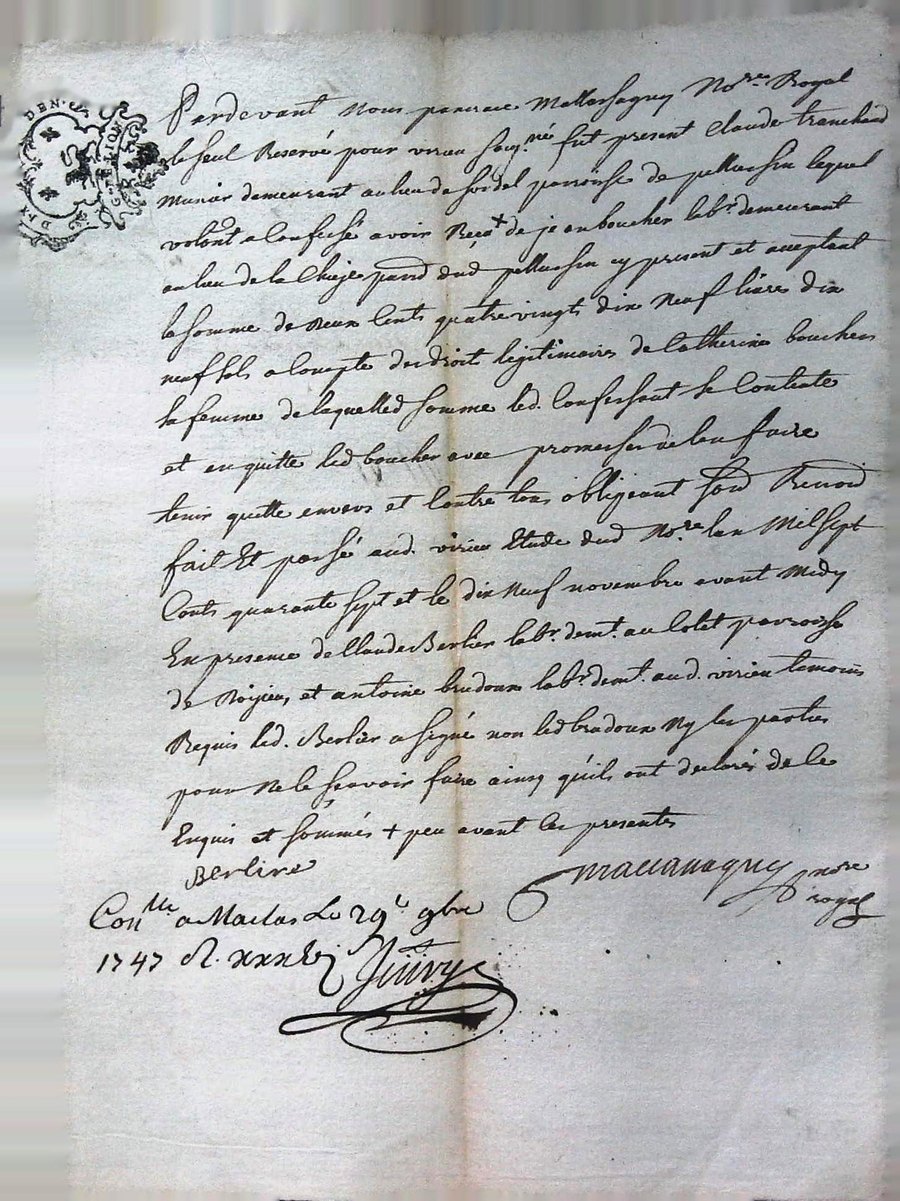 DEN.
Pardevant Nous pancrace Nore Royal
le seul Reservé pour virieu soug.né fut present Claude tranchand
demeurant au lieu de sordel parroisse de pellussin lequel
volont a confessé avoir Receu + de jean boucher labr. demeurant
au lieu de la parr dud pellussin cy present et acceptant
la somme de Deux Cents quatre vingts dix neuf livres dix
neuf sols a Compte des droit legitimaires de Catherine boucher
sa femme de laquelle somme led. Confessant se Contente
et en quitte led boucher avec promesses de len faire
tenir quitte envers et Contre tous obligeant
fait Et passé aud. virieu Etude dud Nore. lan Mil sept
Cents quarante sept et le dix Neuf novembre avant Midy
En presence de Claude Berlier labr. demt. au Colet parroisse
de Roizieu, et antoine labr. demt. aud. virieu temoins
Requis led. Berlier a signé non led Ny les parties
pour Ne le scavoir faire ainsy quils ont declarés de le
Enquis et sommés + peu avant les presentes
Berlire
nore
royal
Conlle a Maclas Le 29e 9bre
1747 R.